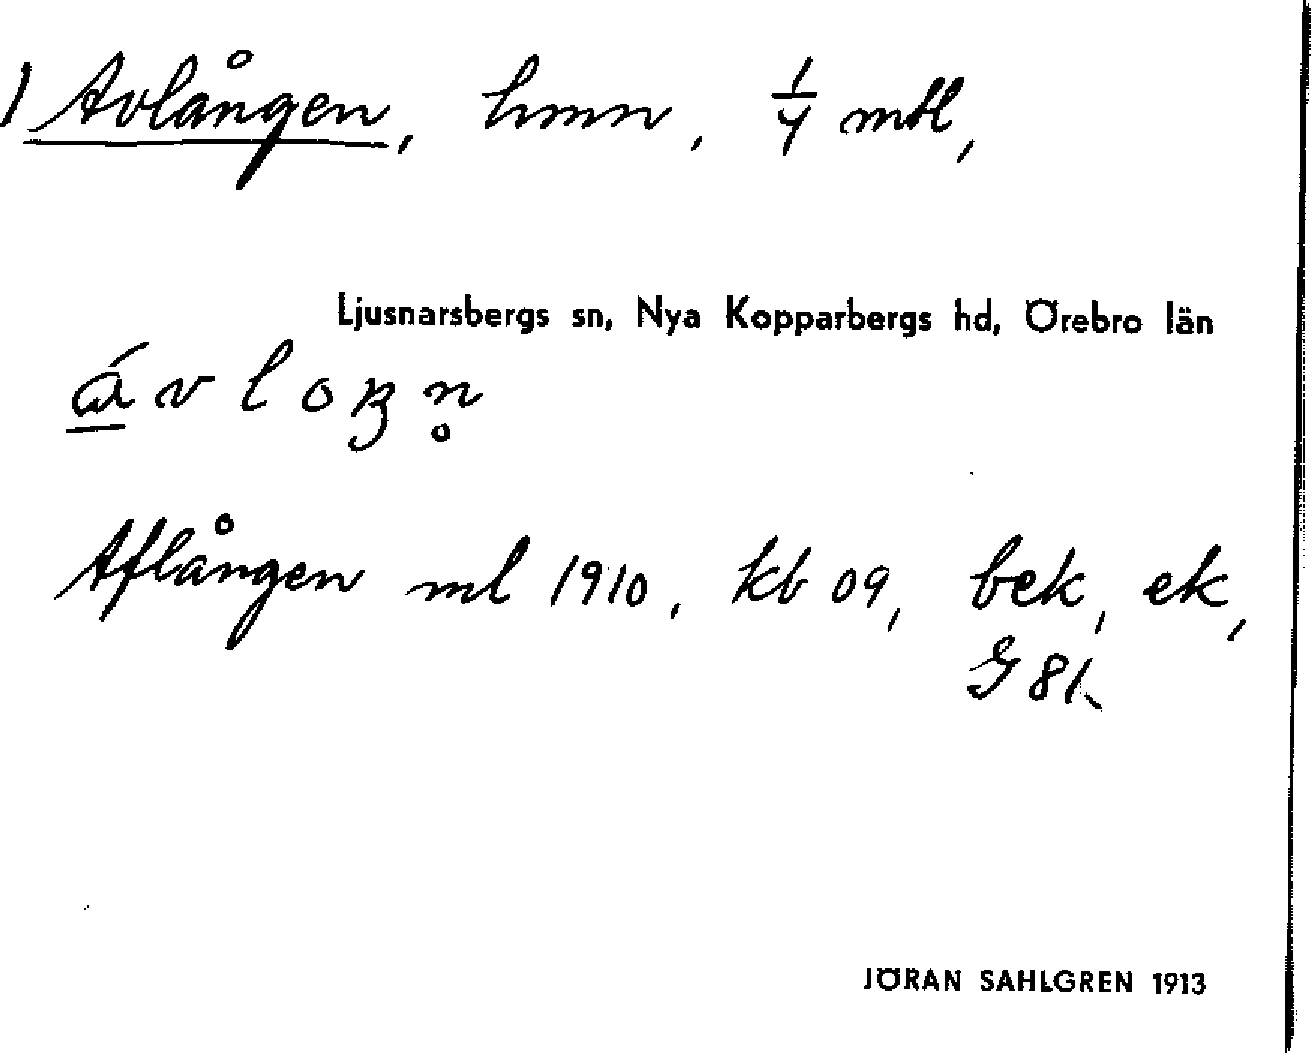 1) Avlången, hmn, 1/4 mtl,
Ljusnarsbergs sn, Nya Kopparbergs hd, Örebro län
ávloŋn̥
Aflången ml 1910, kb 09, bek, ek,
G 81.
JÖRAN SAHLGREN 1913